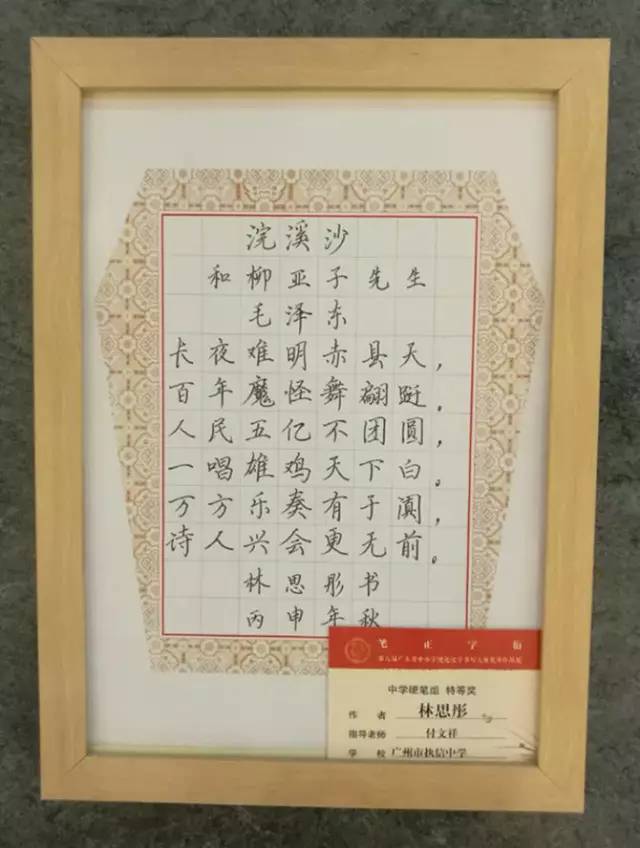 浣溪沙
和柳亚子先生
毛泽东
长夜难明赤县天，
百年魔怪舞翩跹。
人民五亿不团圆，
一唱雄鸡天下白。
万方乐奏有于阗，
诗人兴会更无前。
林思彤书
丙申年秋
笔正字
中学硬笔组 特等奖
作者 林思彤
指导老师 付文祥
学校 广州市执信中学